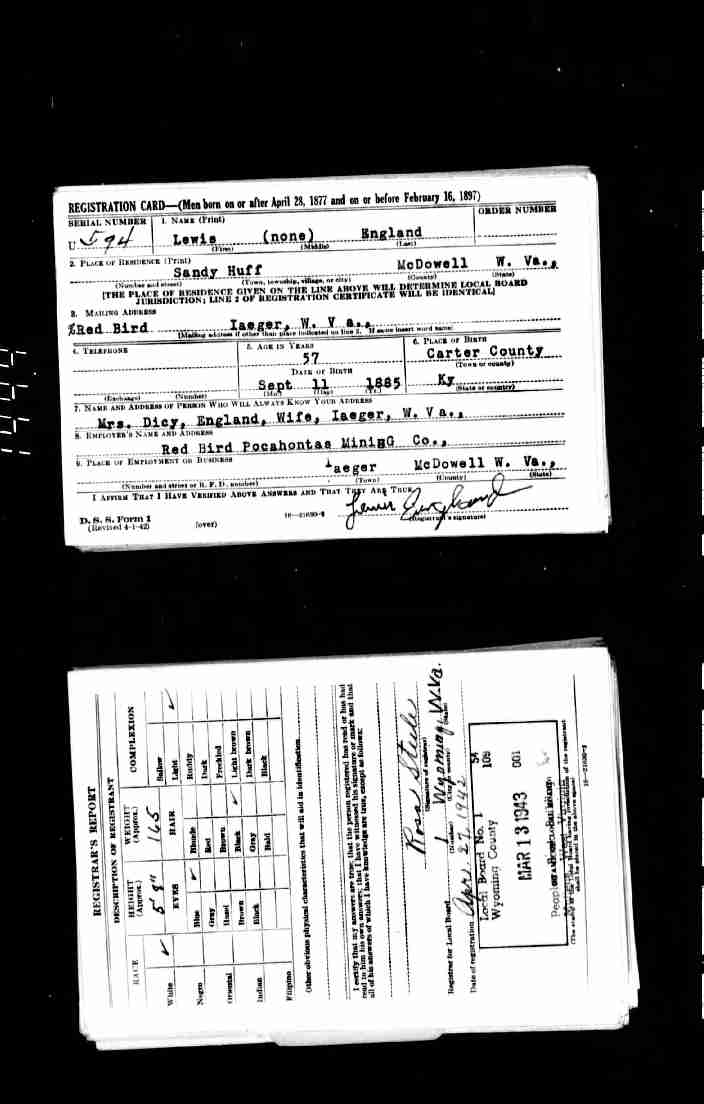 REGISTRATION CARD—(Men born on or after April 28, 1877 and on or before February 16, 1897)
SERIAL NUMBER 1. NAME (Print) ORDER NUMBER
U 594 Lewis (none) England
(First) (Middle) (Last)
2. PLACE OF RESIDENCE (Print)
Sandy Huff McDowell W. Va.,
(Number and street) (Town, township, village, or city) (County) (State)
[THE PLACE OF RESIDENCE GIVEN ON THE LINE ABOVE WILL DETERMINE LOCAL BOARD
JURISDICTION; LINE 2 OF REGISTRATION CERTIFICATE WILL BE IDENTICAL]
3. MAILING ADDRESS
%Red Bird Iaeger, W. V a.,
[Mailing address if other than place indicated on line 2. If same insert word same]
4. TELEPHONE 5. AGE IN YEARS 6. PLACE OF BIRTH
57 Carter County
(Town or county)
DATE OF BIRTH
Sept 11 1885 Ky
(Exchange) (Number) (Mo.) (Day) (Yr.) (State or country)
7. NAME AND ADDRESS OF PERSON WHO WILL ALWAYS KNOW YOUR ADDRESS
Mrs. Dicy, England, Wife, Iaeger, W. V a.,
8. EMPLOYER'S NAME AND ADDRESS
Red Bird Pocahontas MiniNG Co.,
9. PLACE OF EMPLOYMENT OR BUSINESS
Iaeger McDowell W. Va.,
(Number and street or R. F. D. number) (Town) (County) (State)
I AFFIRM THAT I HAVE VERIFIED ABOVE ANSWERS AND THAT THEY ARE TRUE.
D. S. S. Form 1
(Revised 4-1-42) (over) 16—21630-2 Lewis England
(Registrant's signature)
REGISTRAR'S REPORT
DESCRIPTION OF REGISTRANT
RACE HEIGHT (Approx.) WEIGHT (Approx.) COMPLEXION
5' 8" 165
White ✓ EYES HAIR Sallow
Light ✓
Negro Blue ✓ Blonde Ruddy
Gray Red Dark
Oriental Hazel Brown Freckled
Brown Black ✓ Light brown
Indian Black Gray Dark brown
Bald Black
Filipino
Other obvious physical characteristics that will aid in identification
I certify that my answers are true; that the person registered has read or has had
read to him his own answers; that I have witnessed his signature or mark and that
all of his answers of which I have knowledge are true, except as follows:
Rosa Steele
(Signature of registrar)
Registrar for Local Board 1 Wyoming W.Va.
(Number) (City or county) (State)
Date of registration Apr. 27, 1942
Local Board No. 1 54
Wyoming County 109
MAR 13 1943 001
(The stamp of the Local Board having jurisdiction of the registrant
shall be placed in the above space)
16—21630-2